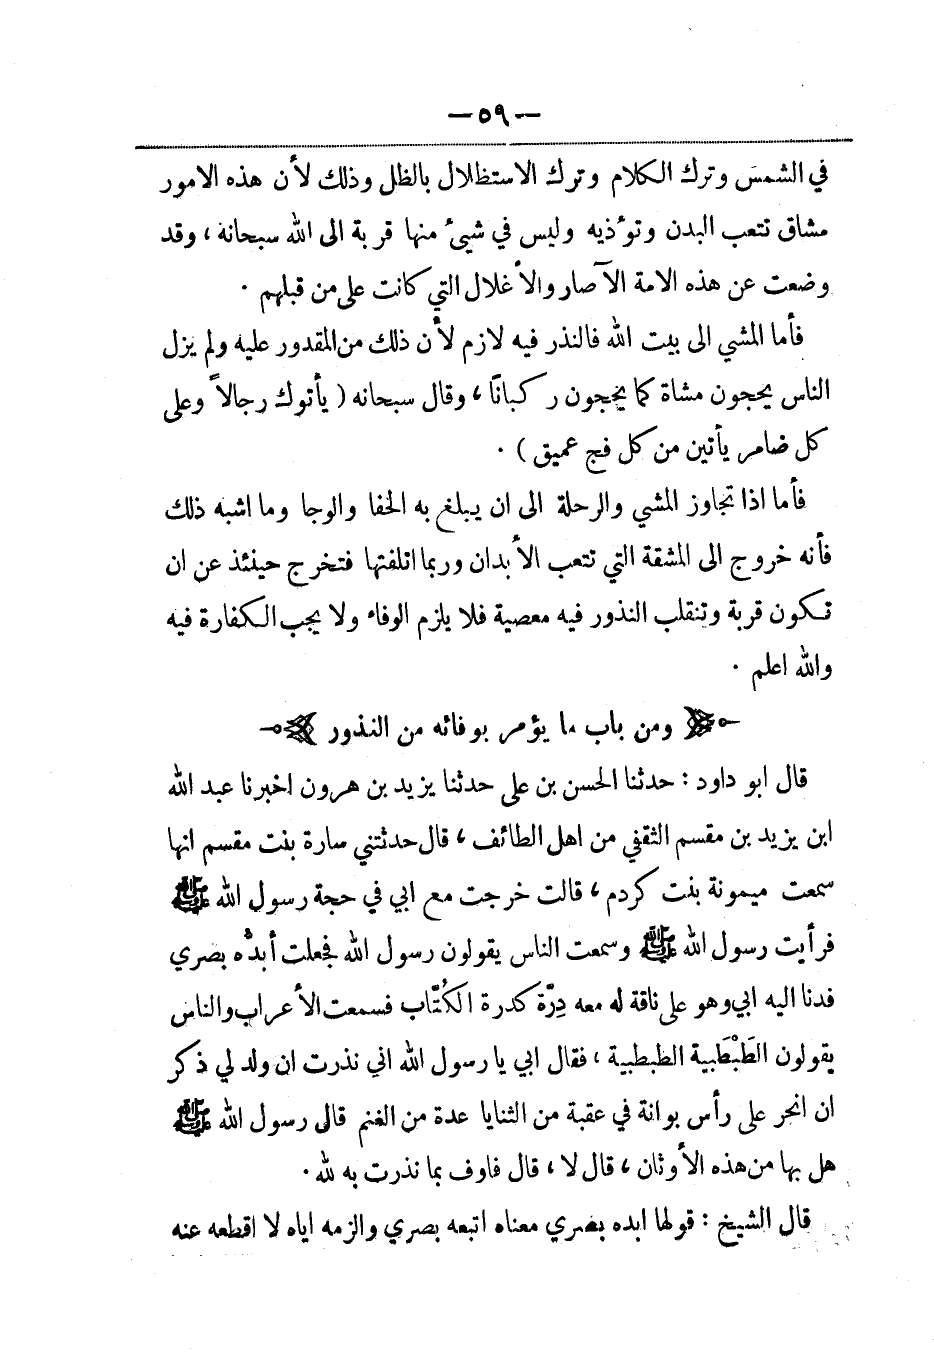 — ٥٩ —
في الشمس وترك الكلام وترك الاستظلال بالظل وذلك لأن هذه الامور
مشاق تتعب البدن وتوٴذيه وليس في شيىٴ منها قربة الى الله سبحانه ، وقد
وضعت عن هذه الامة الآصار والأغلال التي كانت على من قبلهم ٠
فأما المشي الى بيت الله فالنذر فيه لازم لأن ذلك من المقدور عليه ولم يزل
الناس يحجون مشاة كما يحجون ركبانًا ، وقال سبحانه ( يأتوك رجالاً وعلى
كل ضامر يأتين من كل فج عميق ) ٠
فأما اذا تجاوز المشي والرحلة الى ان يبلغ به الحفا والوجا وما اشبه ذلك
فأنه خروج الى المشقة التي تتعب الأبدان وربما اتلفتها فتخرج حينئذ عن ان
تكون قربة وتنقلب النذور فيه معصية فلا يلزم الوفاء ولا يجب الكفارة فيه
والله اعلم ٠
ومن باب ما يؤمر بوفائه من النذور
قال ابو داود : حدثنا الحسن بن على حدثنا يزيد بن هرون اخبرنا عبد الله
ابن يزيد بن مقسم الثقفي من اهل الطائف ، قال حدثتني سارة بنت مقسم انها
سمعت ميمونة بنت كردم ، قالت خرجت مع ابي في حجة رسول الله ﷺ
فرأيت رسول الله ﷺ وسمعت الناس يقولون رسول الله فجعلت أبدُّه بصري
فدنا اليه ابي وهو على ناقة له معه دِرّة كدرة الكُتّاب فسمعت الأعراب والناس
يقولون الطَبْطَبية الطبطبية ، فقال ابي يا رسول الله اني نذرت ان ولد لي ذكر
ان انحر على رأس بوانة في عقبة من الثنايا عدة من الغنم قال رسول الله ﷺ
هل بها من هذه الأوثان ، قال لا ، قال فاوف بما نذرت به لله ٠
قال الشيخ : قولها ابده بصري معناه اتبعه بصري والزمه اياه لا اقطعه عنه